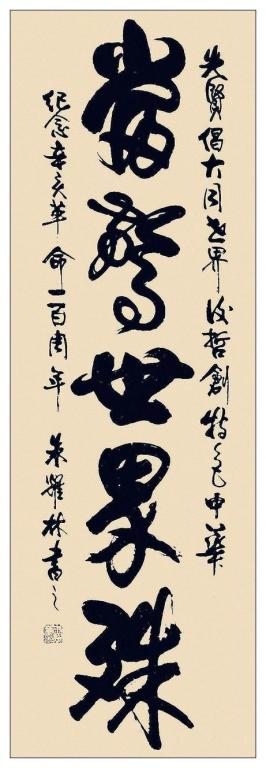 先賢倡大同世界後哲創特色中華
當驚世界殊
紀念辛亥革命一百周年 朱耀林書之